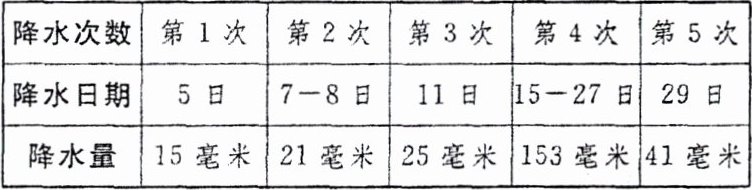 降水次数 第1次 第2次 第3次 第4次 第5次
降水日期 5日 7－8日 11日 15－27日 29日
降水量 15毫米 21毫米 25毫米 153毫米 41毫米